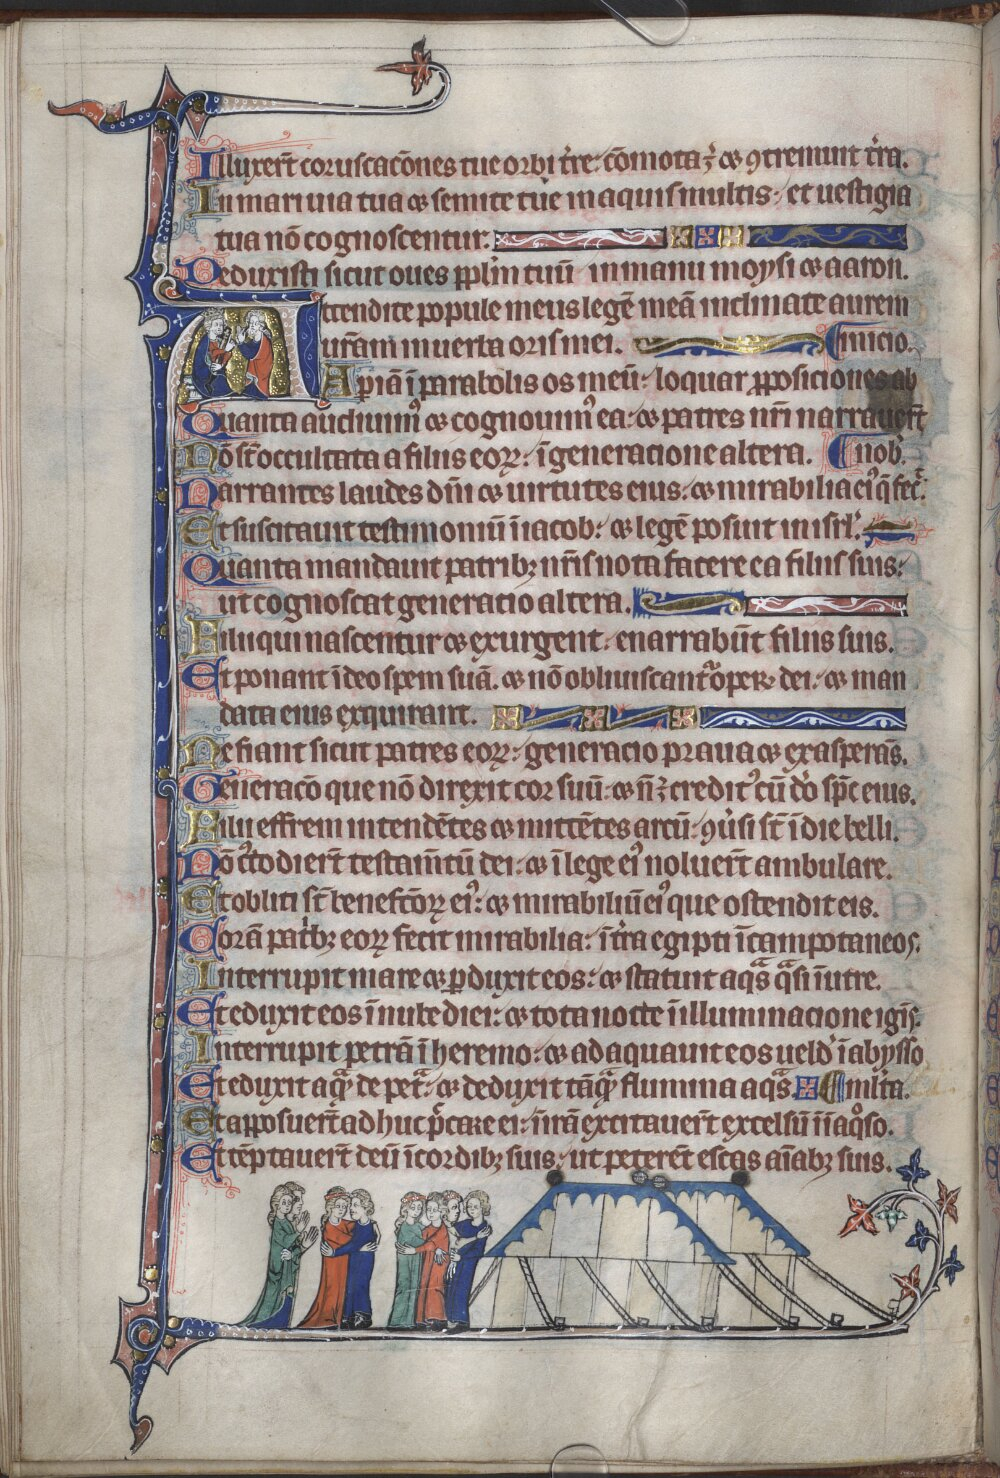 Illuxer̄t coruscac̄ones tue orbi t̄re: c̄omota ē ⁊ ꝯtremuit t̄ra.
In mari uia tua ⁊ semite tue in aquis multis: et uestigia
tua nō cognoscentur.
Deduxisti sicut oues pp̄lm tuū in manu moysi ⁊ aaron.
Attendite popule meus legē meā inclinate aurem
ur̄am in uerba oris mei. inicio.
Apiā ī parabolis os meū: loquar ꝓposiciones ab
Quanta audiuim᷒ ⁊ cognouim᷒ ea: ⁊ patres nr̄i narrauer̄t
Nō st̄ occultata a filiis eoꝝ: ī generacione altera. nob̄.
Narrantes laudes dn̄i ⁊ uirtutes eius: ⁊ mirabilia ei᷒ q̄ fec̄.
Et suscitauit testimoniū ī iacob: ⁊ legē posuit in isrl̄.
Quanta mandauit patribꝫ nr̄is nota facere ea filiis suis:
ut cognoscat generacio altera.
Filii qui nascentur ⁊ exurgent: enarrabūt filiis suis.
Et ponant ī deo spem suā. ⁊ nō obliuiscant᷑ oper̄ dei: ⁊ man
data eius exquirant.
Ne fiant sicut patres eoꝝ: generacio praua ⁊ exasperās.
Generac̄o que nō direxit cor suū: ⁊ n̄ ē credit᷒ cū d̄o sp̄c eius.
Filii effrem intendētes ⁊ mittētes arcū: ꝯūsi st̄ ī die belli.
Nō c᷒todier̄t testam̄tū dei: ⁊ ī lege ei᷒ noluer̄t ambulare.
Et obliti st̄ benefc̄oꝝ ei᷒: ⁊ mirabiliū ei᷒ que ostendit eis.
Corā pat̄bꝫ eoꝝ fecit mirabilia: ī t̄ra egipti ī campo taneos.
Interrupit mare ⁊ ꝑduxit eos: ⁊ statuit aqᵃs qᵃsi ī utre.
Et eduxit eos ī nube diei: ⁊ tota nocte ī illuminacione igīs.
Interrupit petrā ī heremo: ⁊ adaquauit eos uelđ ī abysso
Et eduxit aqᵃ̄ de petᵃ: ⁊ deduxit tāqᵃ̄ flumina aqᵃs. mĪta.
Et apposuer̄t adhuc p̄ccare ei: īn irā excitauer̄t excelsū ī īaqͦso.
Et tēptauer̄t deū ī cordibꝫ suis: ut peterēt escas aīabꝫ suis.